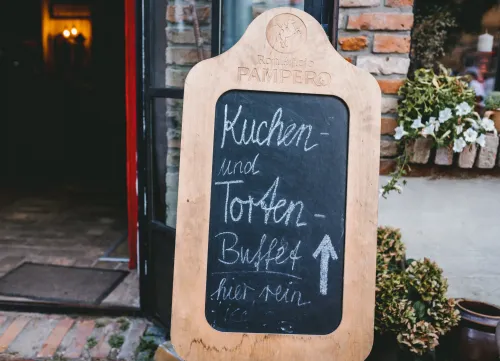 PAMPERO
Kuchen-
und
Torten-
Buffet
hier rein